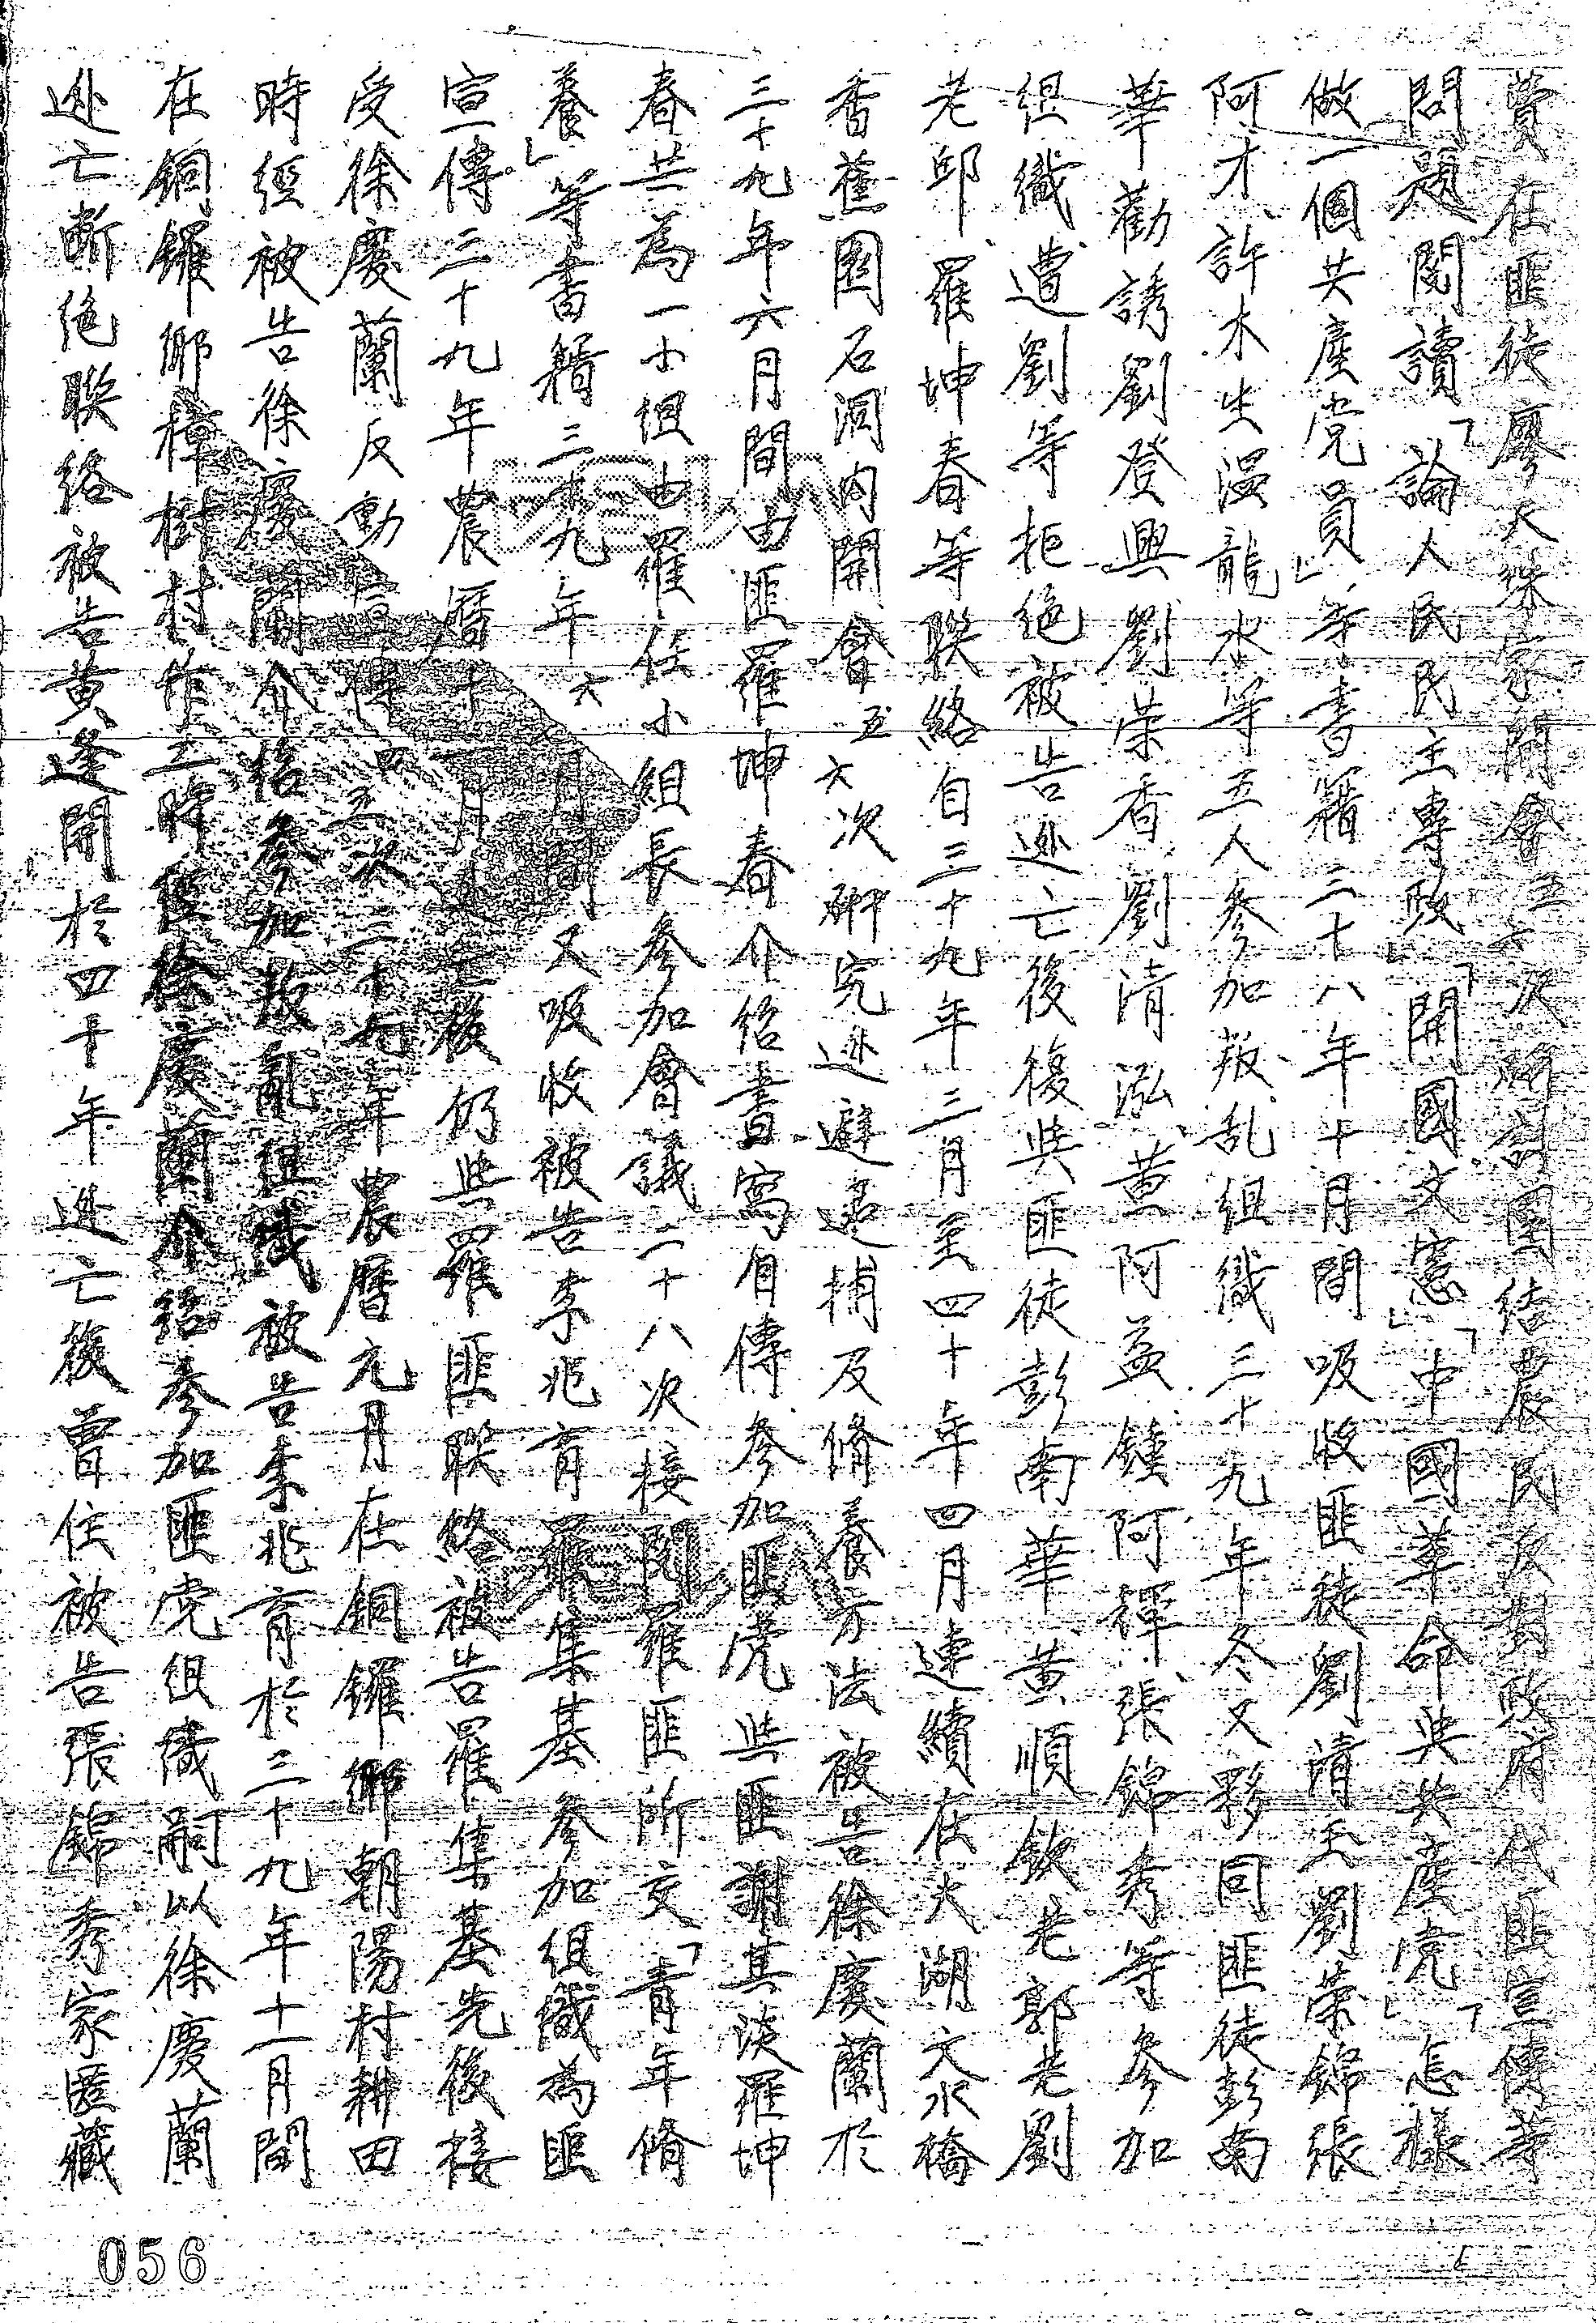 黃在匪徒廖天珠家開會五六次研討團結農民反對政府代匪宣傳等
問題閱讀「論人民民主專政」「開國文憲」「中國革命與共產党」「怎樣
做一個共產党員」等書籍三十八年十月間吸收匪徒劉清玉劉荣錦張
阿才、許木生温龍水等五人參加叛乱組織三十九年冬又夥同匪徒彭南
華勸誘劉登興劉荣香劉清泓、黃阿益鍾阿禪、張錦秀等參加
組織遭劉等拒絕被告逃亡後復與匪徒彭南華黃順欽老郭老劉
老邱、羅坤春等聯絡自三十九年三月至四十年四月連續在大湖文水橋
香蕉園石洞內開會五六次研究逃避追捕及脩養方法被告徐慶蘭於
三十九年六月間由匪羅坤春介紹書寫自傳參加匪党與匪謝其淡羅坤
春共為一小組由羅任小組長參加會議二十八次接閱羅匪所交「青年脩
養」等書籍三十九年六月間又吸收被告李兆育羅集基參加組織為匪
宣傳三十九年農曆十一月逃亡後仍與羅匪聯絡被告羅集基先後接
受徐慶蘭反動宣傳四五次三十九年農曆元月在銅鑼鄉朝陽村耕田
時經被告徐慶蘭介紹參加叛亂組織被告李兆育於三十九年十一月間
在銅鑼鄉樟樹村作工時經徐慶蘭介紹參加匪党組織嗣以徐慶蘭
逃亡斷絕聯絡被告黃逢開於四十年逃亡後曾住被告張錦秀家匿藏
056